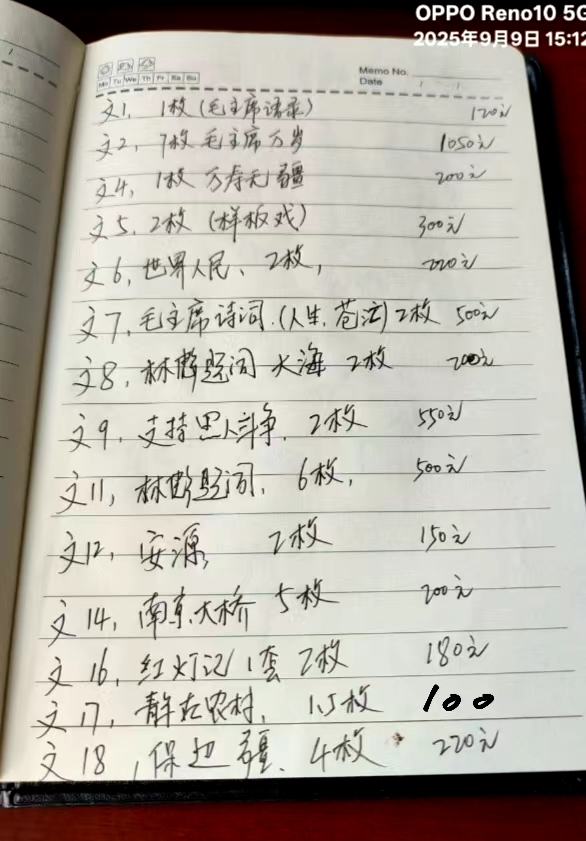 OPPO Reno10 5G
2025年9月9日 15:12
Mo Tu We Th Fr Sa Su
Memo No.
Date / /
文1, 1枚 (毛主席语录) 120元
文2, 7枚 毛主席万岁 1050元
文4, 1枚 万寿无疆 200元
文5, 2枚 (样板戏) 300元
文6, 世界人民、2枚, 220元
文7, 毛主席诗词.(人生, 苍茫) 2枚 500元
文8, 林彪题词 大海 2枚 200元
文9, 支持黑人斗争, 2枚 550元
文11, 林彪题词, 6枚, 500元
文12, 安源, 2枚 150元
文14, 南京大桥 5枚 200元
文16, 红灯记 1套 2枚 180元
文17, 农村, 1.5枚 100
文18, 保边疆、4枚 220元